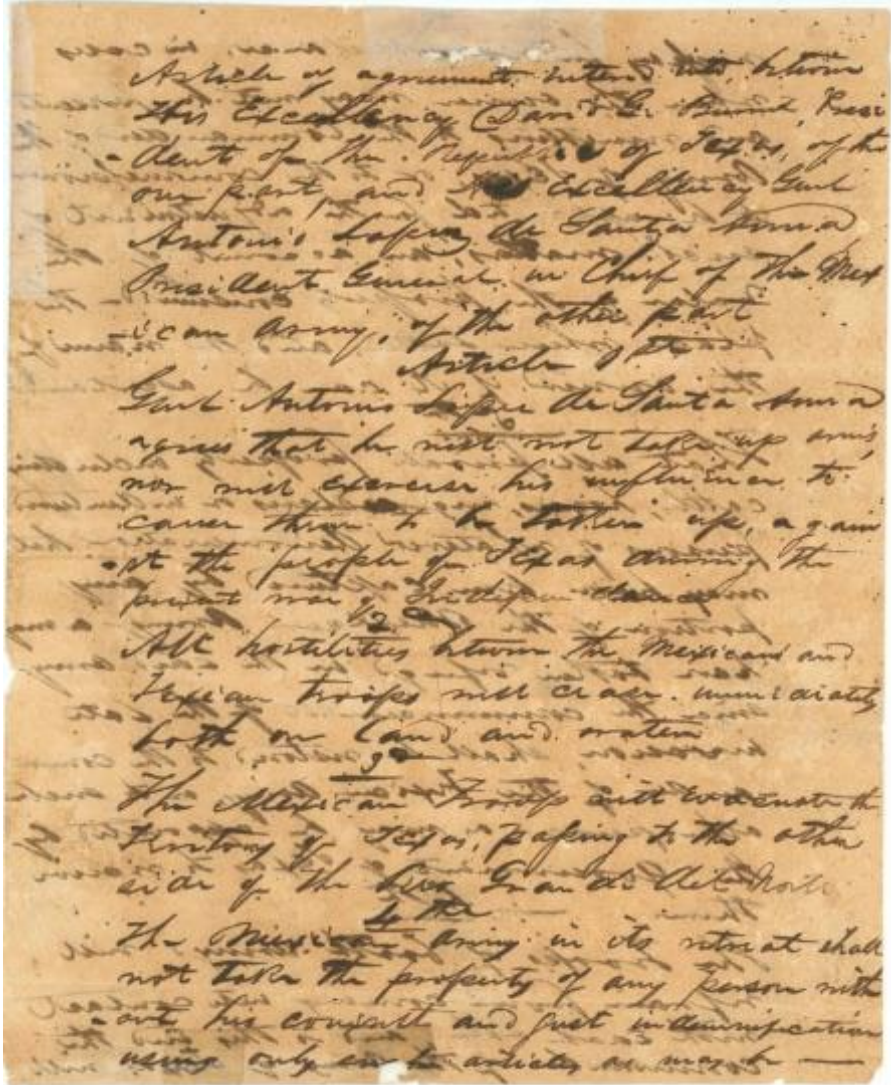 Article of agreement entered into between
His Excellency David G. Burnet, Presi
-dent of the Republic of Texas, of the
one part, and His Excellency Genl
Antonio Lopez de Santa Anna
President General in Chief of the Mex
-ican Army, of the other part
Article 1st
Genl Antonio Lopez de Santa Anna
agrees that he will not take up arms,
nor will exercise his influence to
cause them to be taken up, again
-st the people of Texas during the
present war of Independence
2d
All hostilities between the Mexican and
Texian troops will cease immediately
both on land and water
3d
The Mexican troops will evacuate the
Territory of Texas, passing to the other
side of the Rio Grande del Norte
4th
The Mexican army in its retreat shall
not take the property of any person with
-out his consent and just indemnification
using only such articles as may be —